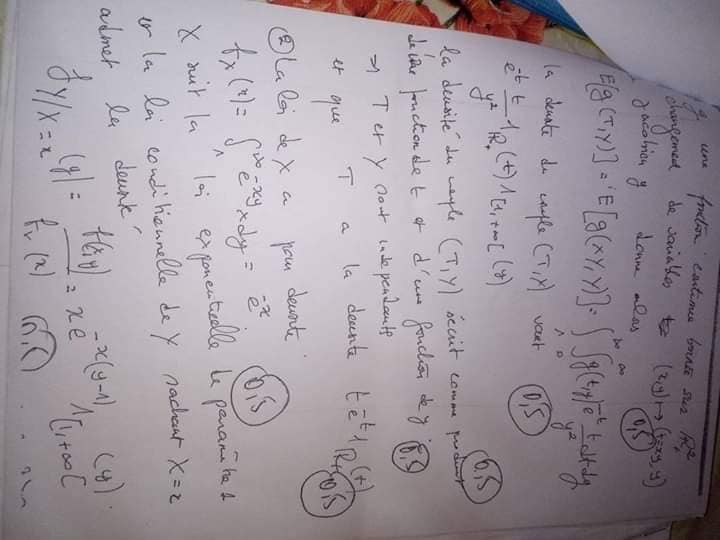 g une fonction continue bornée sur ℝ₊²
changement de variables (x,y) ↦ (t=xy, y)
Jacobien y donne alors 0,5
E[g(T,Y)] = E[g(XY,Y)] = ∫₁^∞ ∫₀^∞ g(t,y) e^{-t} t/y² dt dy
la densité du couple (T,Y) vaut 0,5
e^{-t} t/y² 1_{ℝ₊}(t) 1_{[1,+∞[}(y)
0,5
la densité du couple (T,Y) s'écrit comme produit
de une fonction de t et d'une fonction de y. 0,5
⇒ T et Y sont indépendants
et que T a la densité t e^{-t} 1_{ℝ₊}(t)
0,5
② La loi de X a pour densité
f_X(x) = ∫₁^∞ e^{-xy} x dy = e^{-x}. 0,5
X suit la loi exponentielle de paramètre 1
et la loi conditionnelle de Y sachant X=x
admet la densité
f_{Y/X=x}(y) = f(x,y)/f_X(x) = x e^{-x(y-1)} 1_{[1,+∞[}(y).
0,5